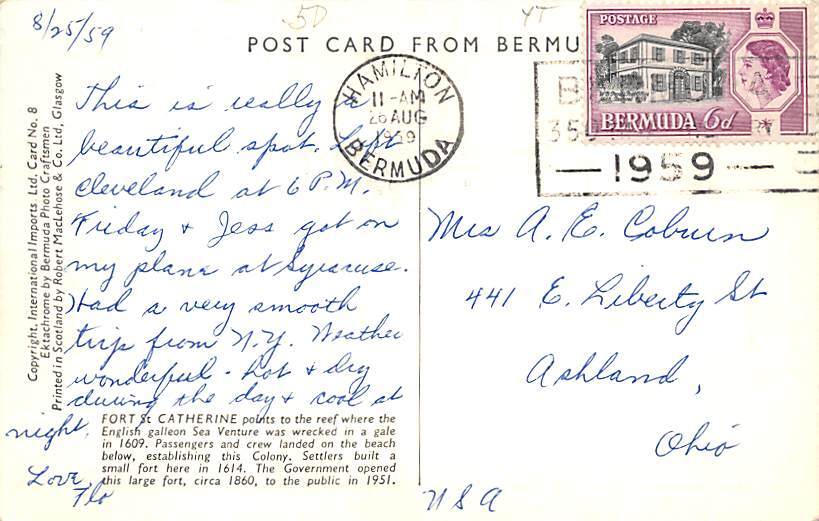 5D
YT
8/25/59
POST CARD FROM BERMU
POSTAGE
BERMUDA 6d
HAMILTON
11-AM
26 AUG
1959
BERMUDA
35
— 1959 —
This is really a
beautiful spot. Left
Cleveland at 6 P.M.
Friday + Jess got on
my plane at Syracuse.
Had a very smooth
trip from N.Y. Weather
wonderful - hot + dry
during the day + cool at
night.
Love,
Flo
Mrs A. E. Coburn
441 E. Liberty St
Ashland,
Ohio
USA
FORT St CATHERINE points to the reef where the
English galleon Sea Venture was wrecked in a gale
in 1609. Passengers and crew landed on the beach
below, establishing this Colony. Settlers built a
small fort here in 1614. The Government opened
this large fort, circa 1860, to the public in 1951.
Copyright, International Imports Ltd. Card No. 8
Ektachrome by Bermuda Photo Craftsmen
Printed in Scotland by Robert MacLehose & Co. Ltd, Glasgow